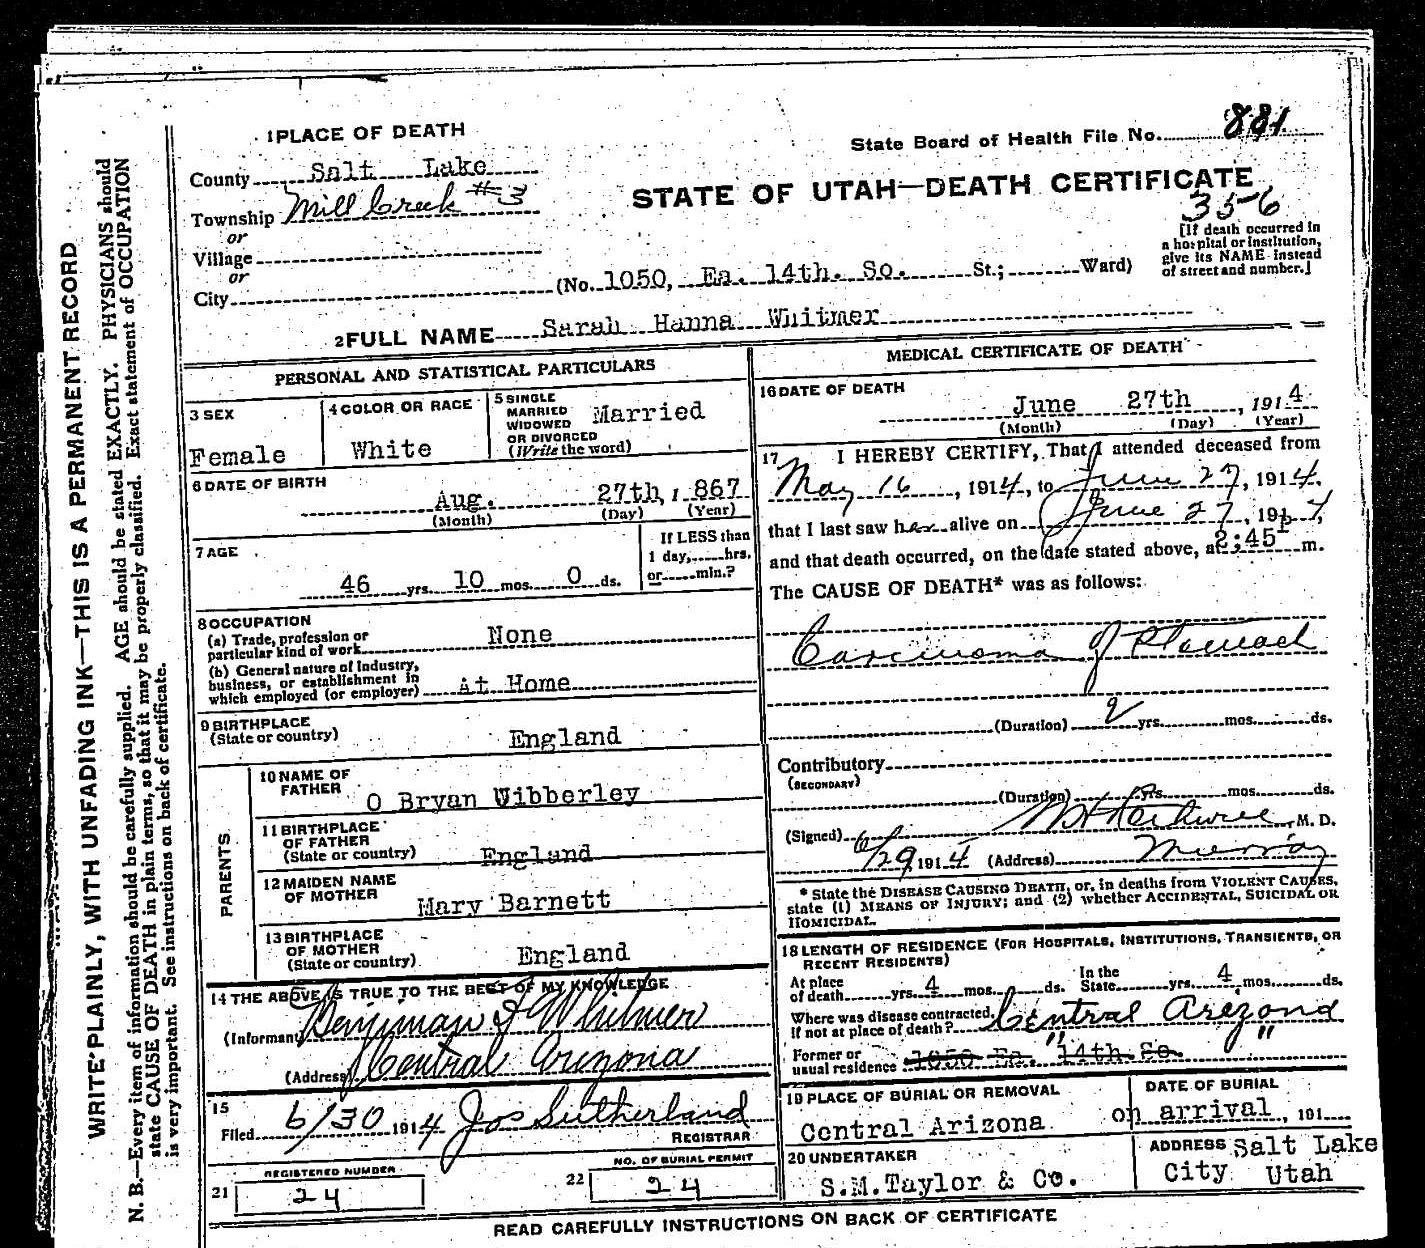 WRITE PLAINLY, WITH UNFADING INK—THIS IS A PERMANENT RECORD
N. B.—Every item of information should be carefully supplied. AGE should be stated EXACTLY. PHYSICIANS should
state CAUSE OF DEATH in plain terms, so that it may be properly classified. Exact statement of OCCUPATION
is very important. See instructions on back of certificate.
1 PLACE OF DEATH
State Board of Health File No. 881
County Salt Lake
STATE OF UTAH—DEATH CERTIFICATE
Township Mill Creek #3
356
or
Village
or
City
(No. 1050, Ea. 14th. So. St.; Ward)
[If death occurred in
a hospital or institution,
give its NAME instead
of street and number.]
2 FULL NAME Sarah Hanna Whitmer
PERSONAL AND STATISTICAL PARTICULARS
3 SEX
Female
4 COLOR OR RACE
White
5 SINGLE
MARRIED
WIDOWED
OR DIVORCED
(Write the word)
Married
6 DATE OF BIRTH
Aug. 27th, 1867
(Month) (Day) (Year)
7 AGE
46 yrs. 10 mos. 0 ds.
If LESS than
1 day, hrs.
or min.?
8 OCCUPATION
(a) Trade, profession or
particular kind of work None
(b) General nature of Industry,
business, or establishment in
which employed (or employer) At Home
9 BIRTHPLACE
(State or country)
England
PARENTS
10 NAME OF
FATHER
O Bryan Wibberley
11 BIRTHPLACE
OF FATHER
(State or country) England
12 MAIDEN NAME
OF MOTHER
Mary Barnett
13 BIRTHPLACE
OF MOTHER
(State or country) England
14 THE ABOVE IS TRUE TO THE BEST OF MY KNOWLEDGE
(Informant Whitmer
(Address Central Arizona
15
Filed 6/30 1914 Jos Sutherland
REGISTRAR
REGISTERED NUMBER
21 24
NO. OF BURIAL PERMIT
22 24
MEDICAL CERTIFICATE OF DEATH
16 DATE OF DEATH
June 27th, 1914
(Month) (Day) (Year)
17 I HEREBY CERTIFY, That I attended deceased from
May 16, 1914, to June 27, 1914.
that I last saw her alive on June 27, 1914,
and that death occurred, on the date stated above, at 2;45 P m.
The CAUSE OF DEATH* was as follows:
Carcinoma of Stomach
(Duration) 2 yrs. mos. ds.
Contributory
(SECONDARY)
(Duration) yrs. mos. ds.
(Signed) M. D.
6/29, 1914 (Address) Murray
* State the DISEASE CAUSING DEATH, or, in deaths from VIOLENT CAUSES,
state (1) MEANS OF INJURY; and (2) whether ACCIDENTAL, SUICIDAL OR
HOMICIDAL.
18 LENGTH OF RESIDENCE (FOR HOSPITALS, INSTITUTIONS, TRANSIENTS, OR
RECENT RESIDENTS)
At place
of death yrs. 4 mos. ds.
In the
State yrs. 4 mos. ds.
Where was disease contracted,
if not at place of death? Central Arizona
Former or
usual residence 1050 Ea. 14th So. " "
19 PLACE OF BURIAL OR REMOVAL
Central Arizona
DATE OF BURIAL
on arrival, 191
20 UNDERTAKER
S.M.Taylor & Co.
ADDRESS Salt Lake
City Utah
READ CAREFULLY INSTRUCTIONS ON BACK OF CERTIFICATE